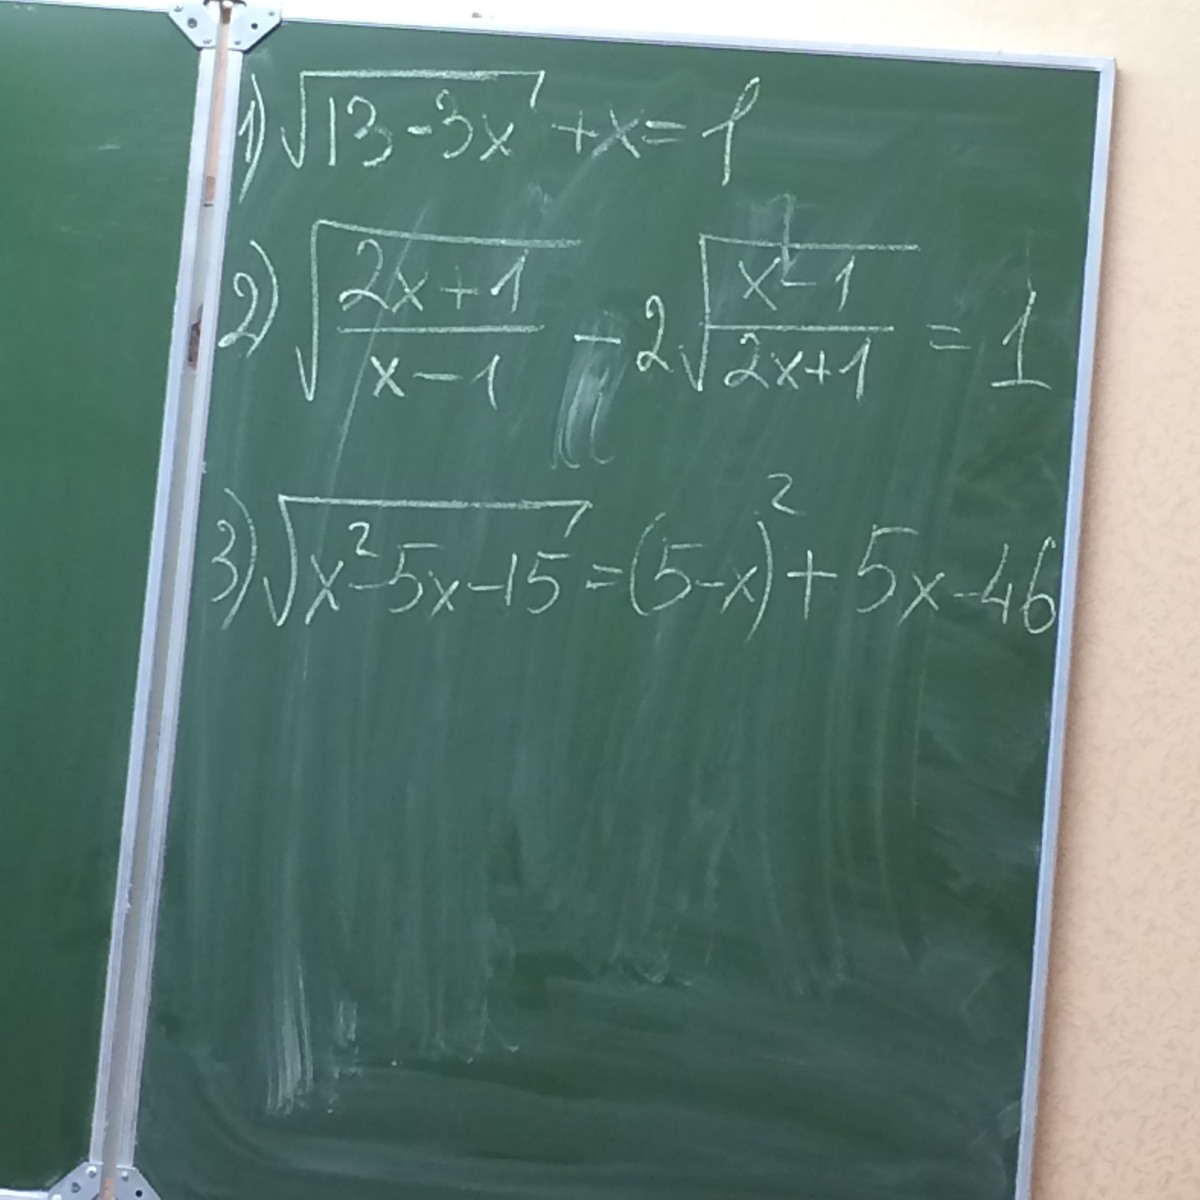 1) √(13-3x) + x = 1
2) √((2x+1)/(x-1)) - 2√((x-1)/(2x+1)) = 1
3) √(x²-5x-15) = (5-x)² + 5x - 46